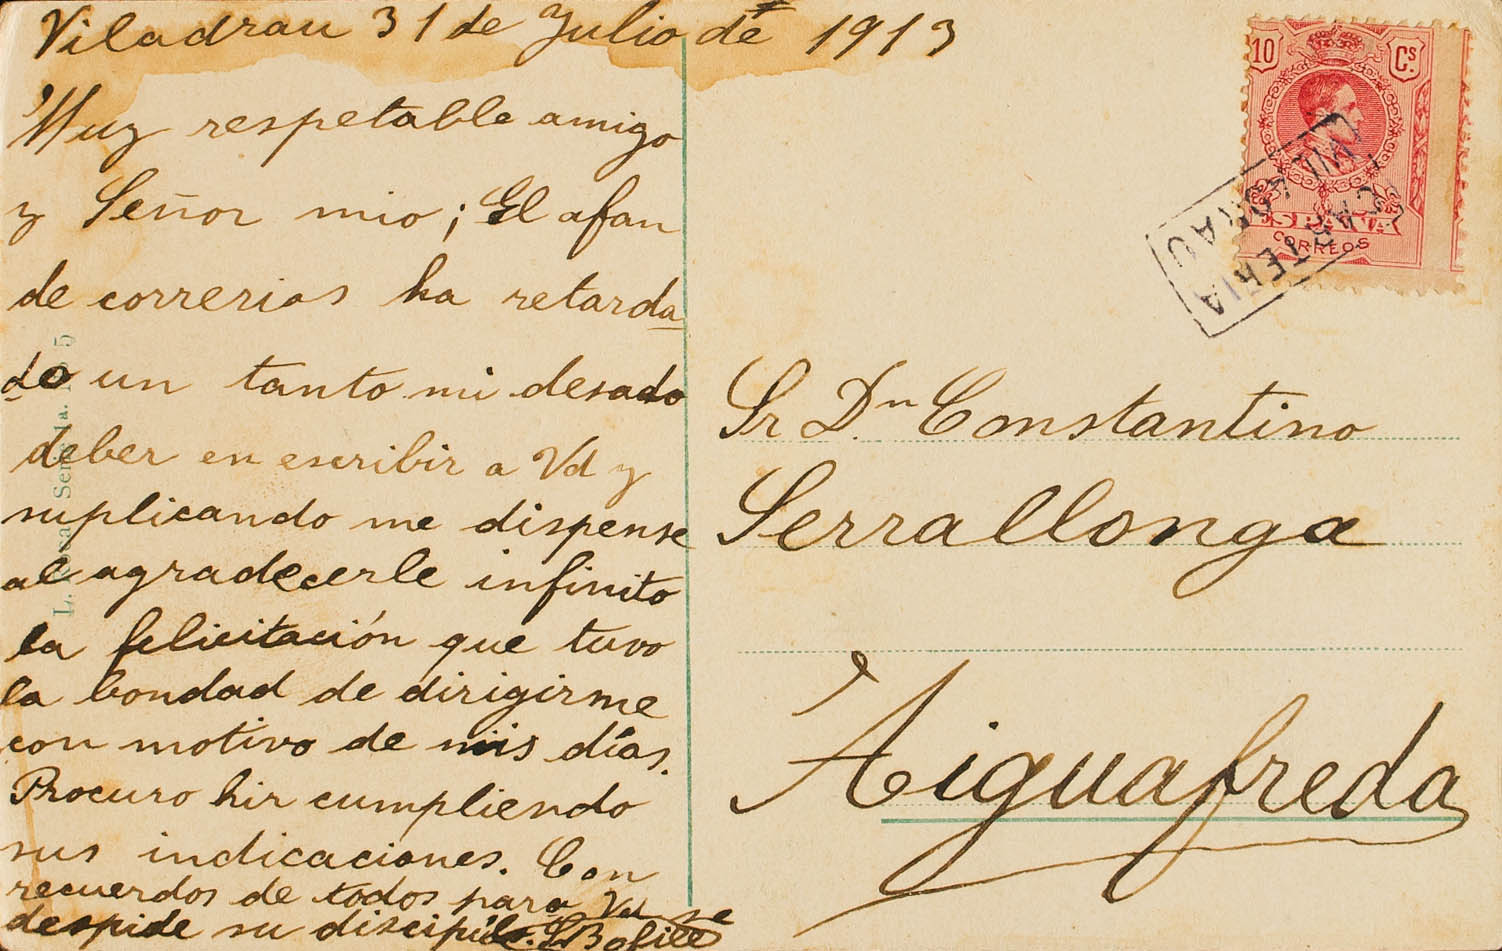 Viladrau 31 de Julio de 1913
Muy respetable amigo
y Señor mio; El afan
de correrias ha retarda
do un tanto mi desado
deber en escribir a Vd y
suplicando me dispense
al agradecerle infinito
la felicitación que tuvo
la bondad de dirigirme
con motivo de mis días.
Procuro hir cumpliendo
sus indicaciones. Con
recuerdos de todos para Vd se
despide su discipulo. Bofill
10 Cs.
ESPAÑA
CORREOS
CARTERIA
VILADRAU
Sr. Dn Constantino
Serrallonga
Aiguafreda